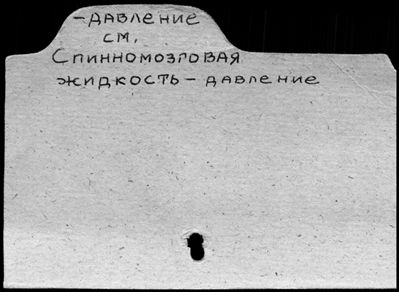 -давление
см.
Спинномозговая
жидкость - давление